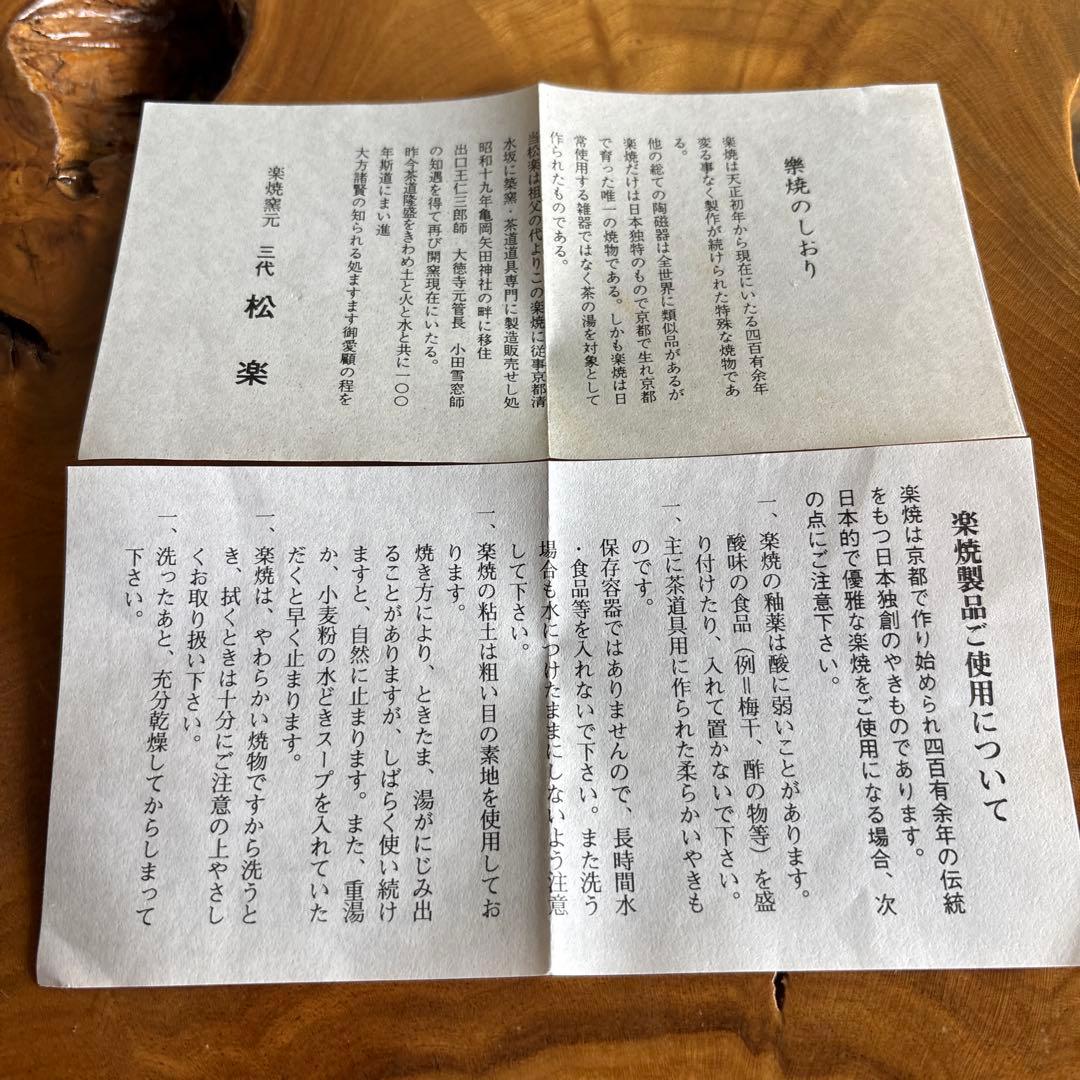 樂焼のしおり
楽焼は天正初年から現在にいたる四百有余年
変る事なく製作が続けられた特殊な焼物であ
る。
他の総ての陶磁器は全世界に類似品があるが
楽焼だけは日本独特のもので京都で生れ京都
で育った唯一の焼物である。しかも楽焼は日
常使用する雑器ではなく茶の湯を対象として
作られたものである。
当松楽は祖父の代よりこの楽焼に従事京都清
水坂に築窯・茶道道具専門に製造販売せし処
昭和十九年亀岡矢田神社の畔に移住
出口王仁三郎師　大徳寺元管長　小田雪窓師
の知遇を得て再び開窯現在にいたる。
昨今茶道隆盛をきわめ土と火と水と共に一〇〇
年斯道にまい進
大方諸賢の知られる処ますます御愛顧の程を
楽焼窯元　三代　松楽
楽焼製品ご使用について
楽焼は京都で作り始められ四百有余年の伝統
をもつ日本独創のやきものであります。
日本的で優雅な楽焼をご使用になる場合、次
の点にご注意下さい。
一、楽焼の釉薬は酸に弱いことがあります。
酸味の食品（例＝梅干、酢の物等）を盛
り付けたり、入れて置かないで下さい。
一、主に茶道具用に作られた柔らかいやきも
のです。
保存容器ではありませんので、長時間水
・食品等を入れないで下さい。また洗う
場合も水につけたままにしないよう注意
して下さい。
一、楽焼の粘土は粗い目の素地を使用してお
ります。
焼き方により、ときたま、湯がにじみ出
ることがありますが、しばらく使い続け
ますと、自然に止まります。また、重湯
か、小麦粉の水どきスープを入れていた
だくと早く止まります。
一、楽焼は、やわらかい焼物ですから洗うと
き、拭くときは十分にご注意の上やさし
くお取り扱い下さい。
一、洗ったあと、充分乾燥してからしまって
下さい。